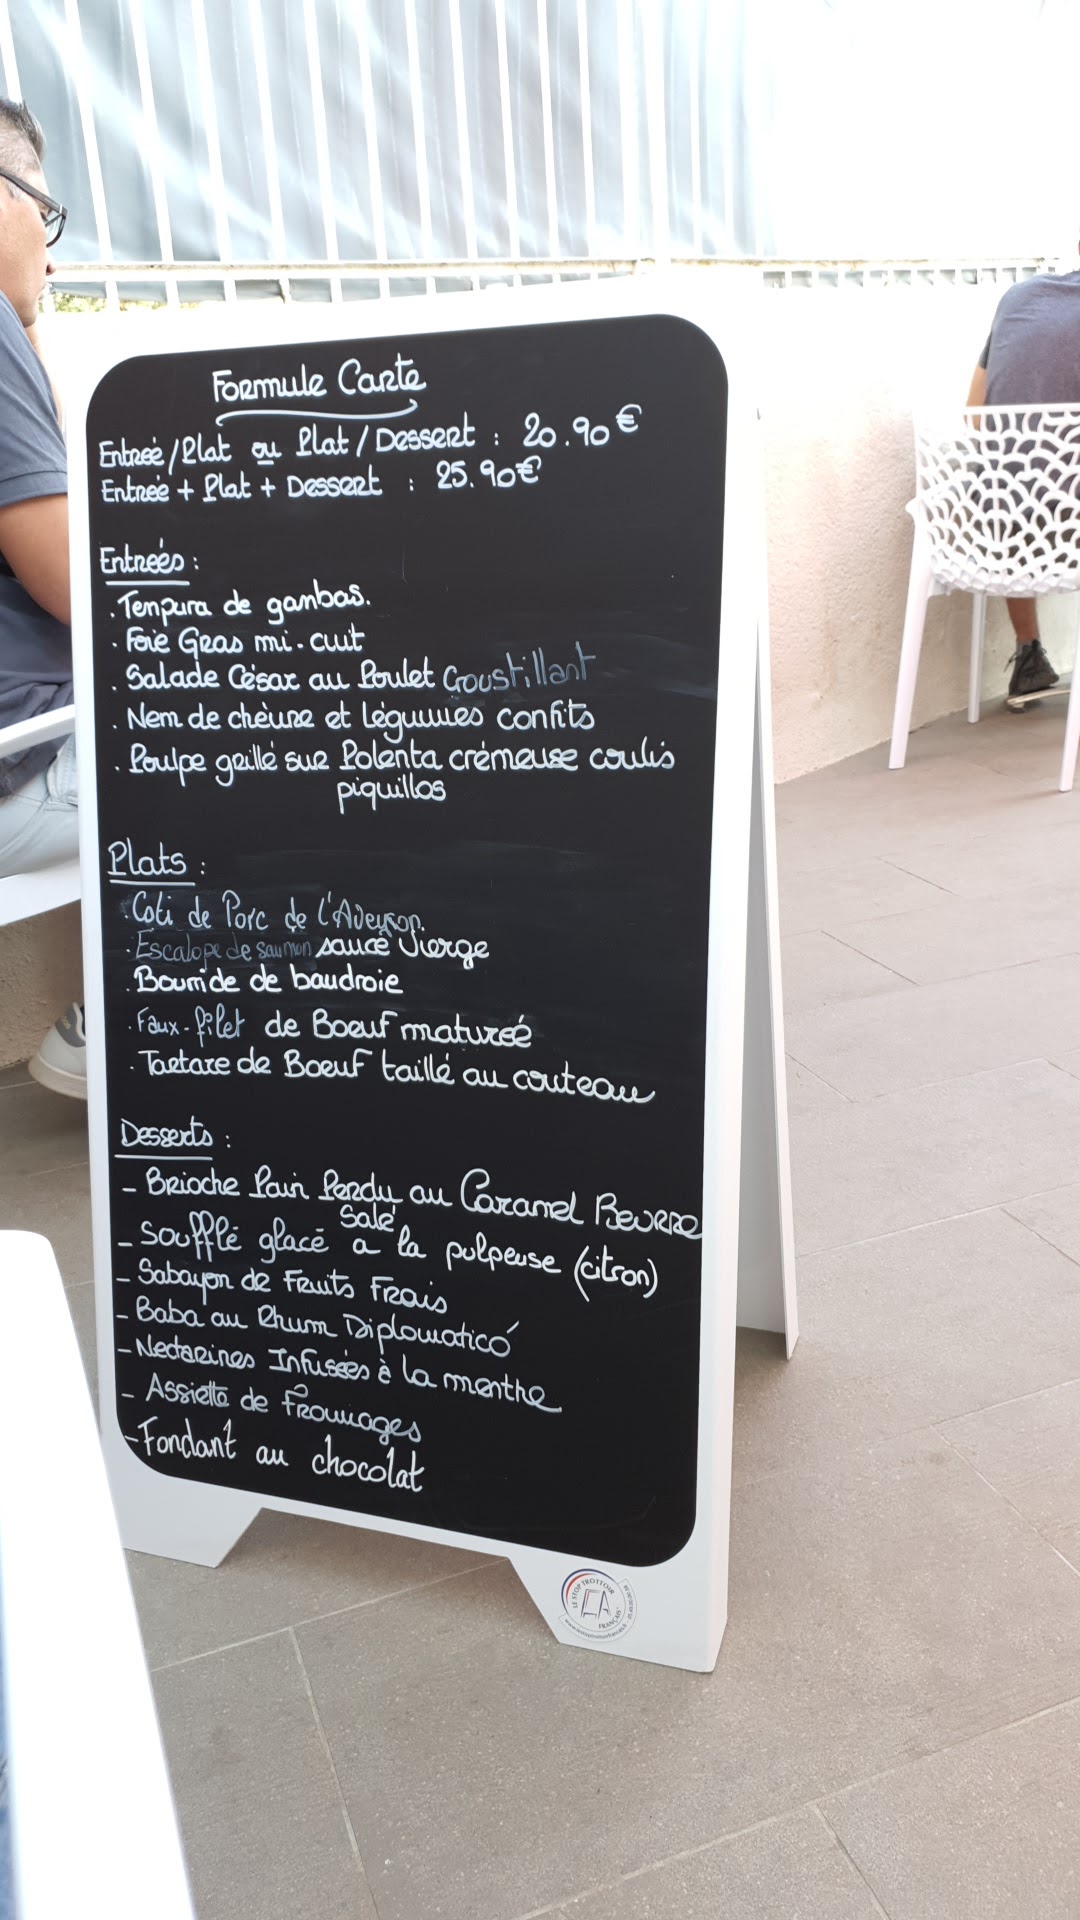 Formule Carte
Entreé/Plat ou Plat/Dessert : 20.90€
Entreé + Plat + Dessert : 25.90€
Entreés :
. Tempura de gambas.
. Foie Gras mi-cuit
. Salade César au Poulet Croustillant
. Nem de chèvre et légumes confits
. Poulpe grillé sur Polenta crémeuse coulis
piquillos
Plats :
. Coti de Porc de l'Aveyron.
. Escalope de saumon sauce Vierge
. Bourride de baudroie
. Faux-filet de Boeuf matureé
. Tartare de Boeuf taillé au couteau
Desserts :
- Brioche Pain Perdu au Caramel Beurre
Salé
- Soufflé glacé a la pulpeuse (citron)
- Sabayon de Fruits Frais
- Baba au Rhum Diplomaticó
- Nectarines Infusées à la menthe
- Assiette de Fromages
- Fondant au chocolat
LE STOP TROTTOIR
FRANÇAIS